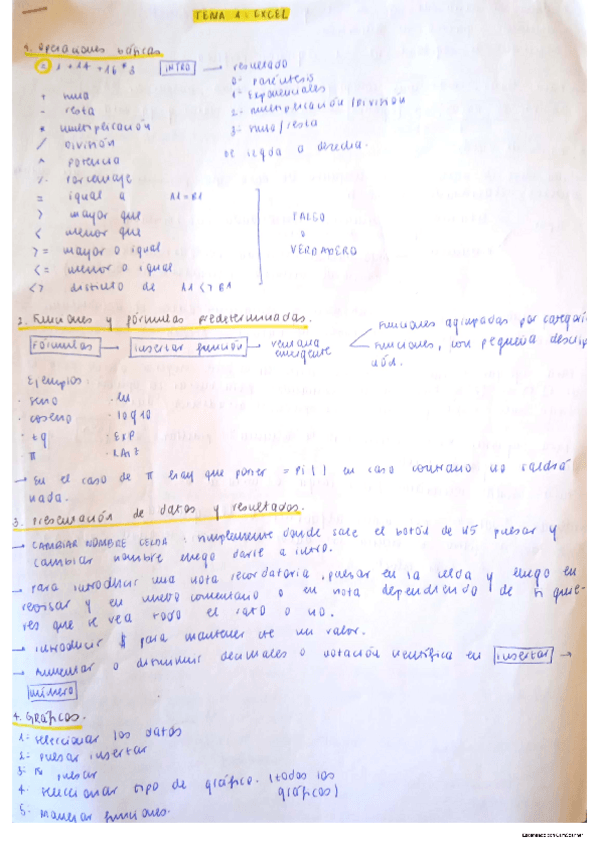 TEMA 1: EXCEL
1. Operaciones básicas.
= 1 + 14 + 16 * 3 INTRO → resultado
0- paréntesis
1- Exponenciales
2- multiplicación / División
3- suma / resta
De izqda a derecha.
+ suma
- resta
* multiplicación
/ División
^ potencia
% Porcentaje
= igual a A1=B1
> mayor que
< menor que
>= mayor o igual
<= menor o igual
<> distinto de A1<>B1
FALSO
o
VERDADERO
2. Funciones y fórmulas predeterminadas.
Fórmulas → insertar función → ventana emergente
Funciones agrupadas por categoría
Funciones, con pequeña descripción.
Ejemplos
· seno · ln
· coseno · log10
· tg · EXP
· π · RAIZ
→ En el caso de π hay que poner = Pi() en caso contrario no saldrá
nada.
3. Presentación de datos y resultados.
→ CAMBIAR NOMBRE CELDA: simplemente donde sale el botón de pulsar y
cambiar nombre luego darle a intro.
→ para introducir una nota recordatoria, pulsar en la celda y luego en
revisar y en nuevo comentario o en nota dependiendo de si quie-
res que se vea todo el rato o no.
→ introducir $ para mantener cte un valor.
→ Aumentar o disminuir decimales o notación científica en insertar →
número
4. Gráficos.
1- seleccionar los datos
2- pulsar insertar
3- pulsar
4- seleccionar tipo de gráfico. (todos los
gráficos)
5- manejar funciones.